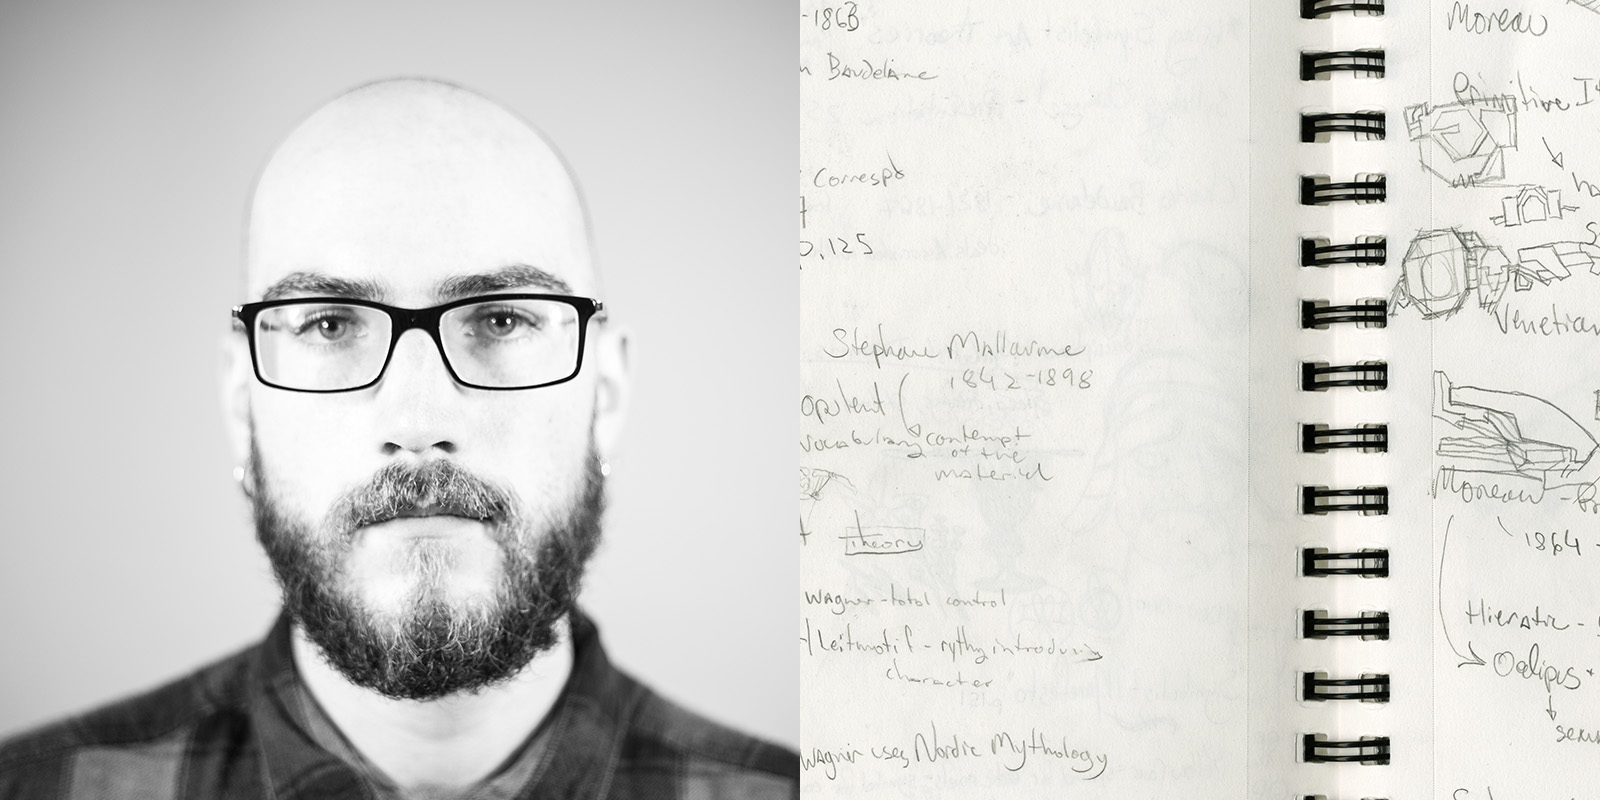 -1863
n Baudelaire
Correspo
0,125
Stephane Mallarme
1842-1898
opulent
vocabulary contempt
of the
material
theory
Wagner-total control
Leitmotif - rythy introducing
character
Wagner uses Nordic Mythology
Moreau
Primitive It
ha
Venetian
Moreau -
1864 -
Hieratic -
Oedipus
sexu